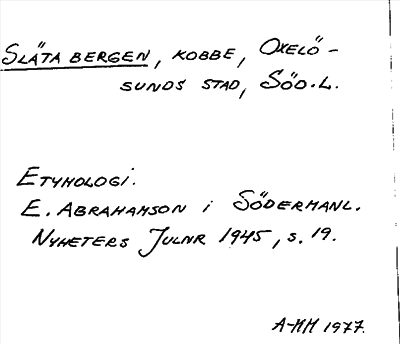 SLÄTA BERGEN, KOBBE, OXELÖ-
SUNDS STAD, SÖD.L.
ETYMOLOGI.
E. ABRAHAMSON i SÖDERMANL.
NYHETERS JULNR 1945, s. 19.
A-MM 1977.